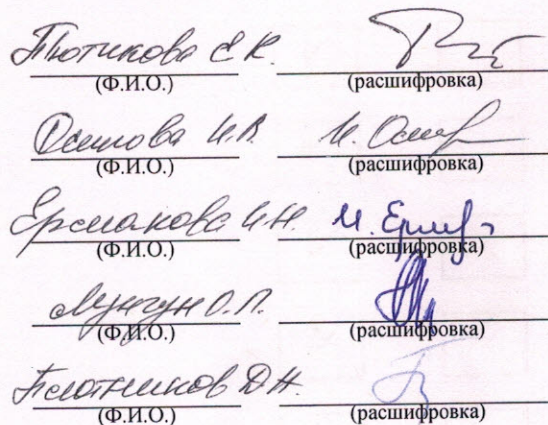 Тютикова Е.К.
(Ф.И.О.) (расшифровка)
Осипова И.В. И. Осип
(Ф.И.О.) (расшифровка)
Ермакова И.Н. И. Ермак
(Ф.И.О.) (расшифровка)
Лунгун О.П.
(Ф.И.О.) (расшифровка)
Плотников Д.Н.
(Ф.И.О.) (расшифровка)